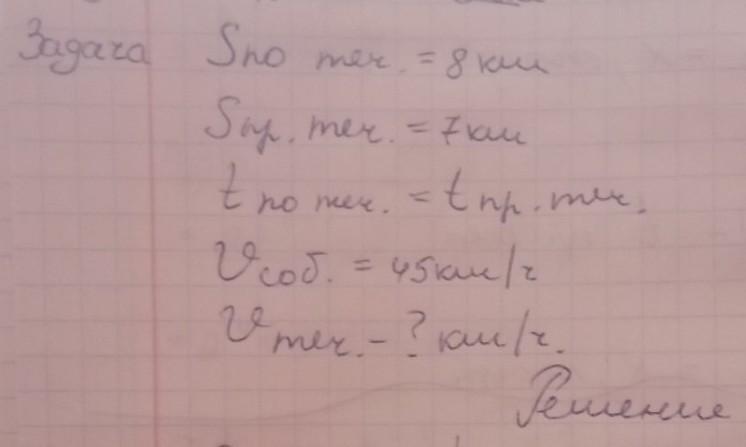 Задача Sпо теч. = 8 км
Sпр. теч. = 7 км
t по теч. = t пр. теч.
Vсоб. = 45 км/ч
Vтеч. - ? км/ч.
Решение